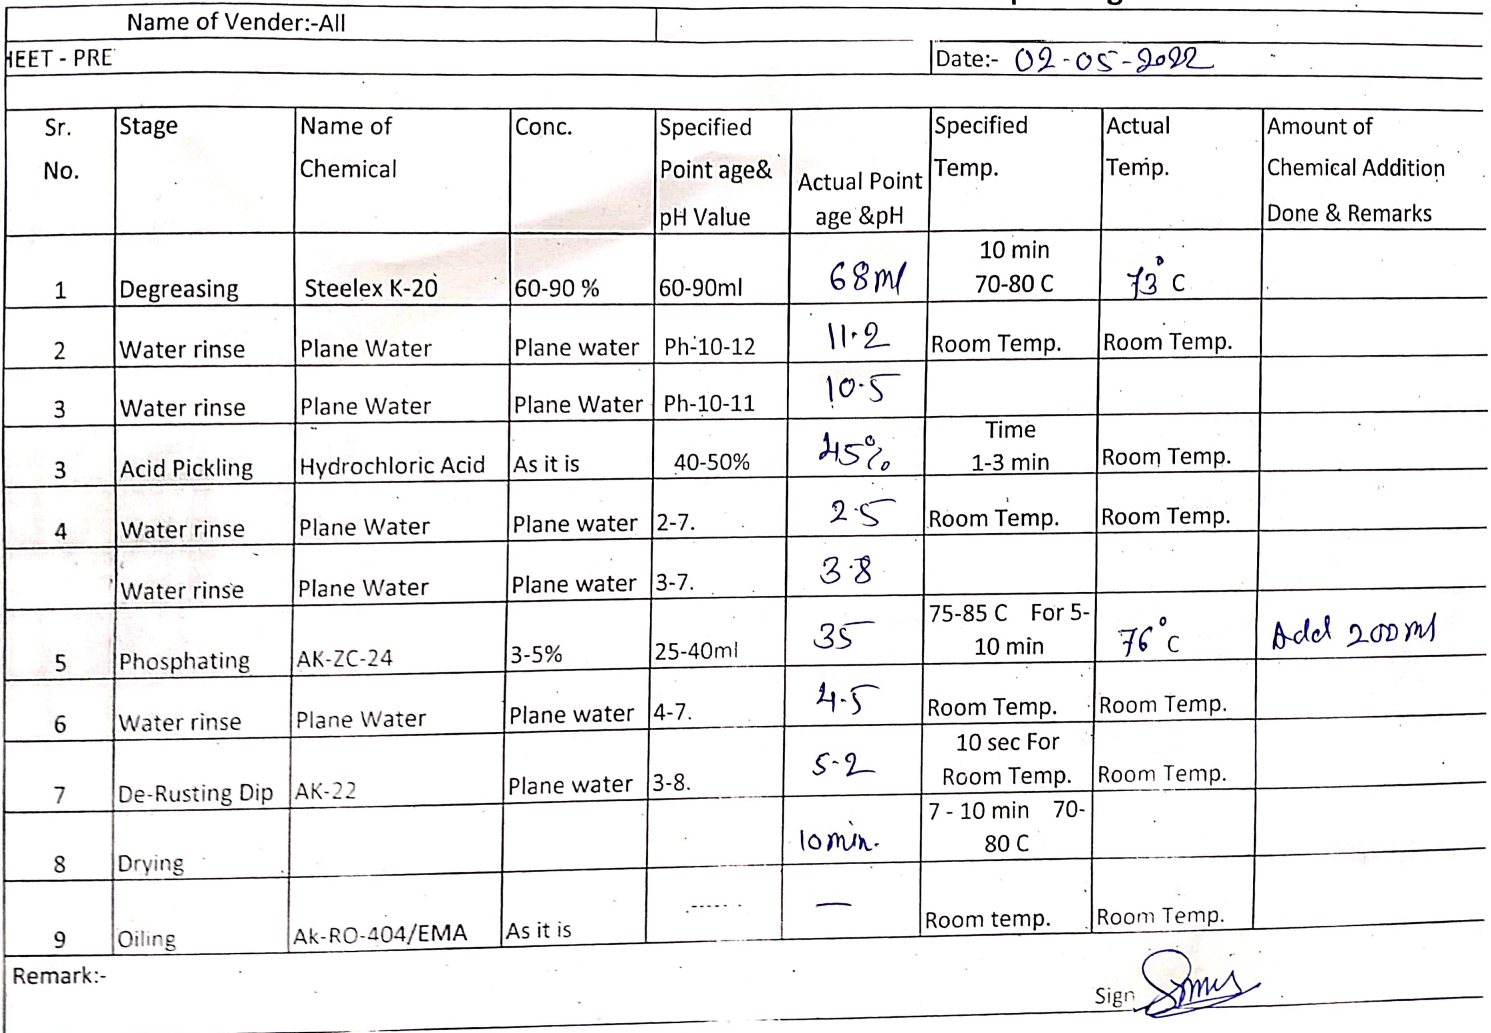 Name of Vender:-All
HEET - PRE
Date:- 02-05-2022
Sr. No. Stage Name of Chemical Conc. Specified Point age& pH Value Actual Point age &pH Specified Temp. Actual Temp. Amount of Chemical Addition Done & Remarks
1 Degreasing Steelex K-20 60-90 % 60-90ml 68ml 10 min 70-80 C 73° C
2 Water rinse Plane Water Plane water Ph-10-12 11.2 Room Temp. Room Temp.
3 Water rinse Plane Water Plane Water Ph-10-11 10.5
3 Acid Pickling Hydrochloric Acid As it is 40-50% 45% Time 1-3 min Room Temp.
4 Water rinse Plane Water Plane water 2-7. 2.5 Room Temp. Room Temp.
Water rinse Plane Water Plane water 3-7. 3.8
5 Phosphating AK-ZC-24 3-5% 25-40ml 35 75-85 C For 5-10 min 76° C Add 200ml
6 Water rinse Plane Water Plane water 4-7. 4.5 Room Temp. Room Temp.
7 De-Rusting Dip AK-22 Plane water 3-8. 5.2 10 sec For Room Temp. Room Temp.
8 Drying 10 min. 7 - 10 min 70-80 C
9 Oiling Ak-RO-404/EMA As it is ------ — Room temp. Room Temp.
Remark:-
Sign